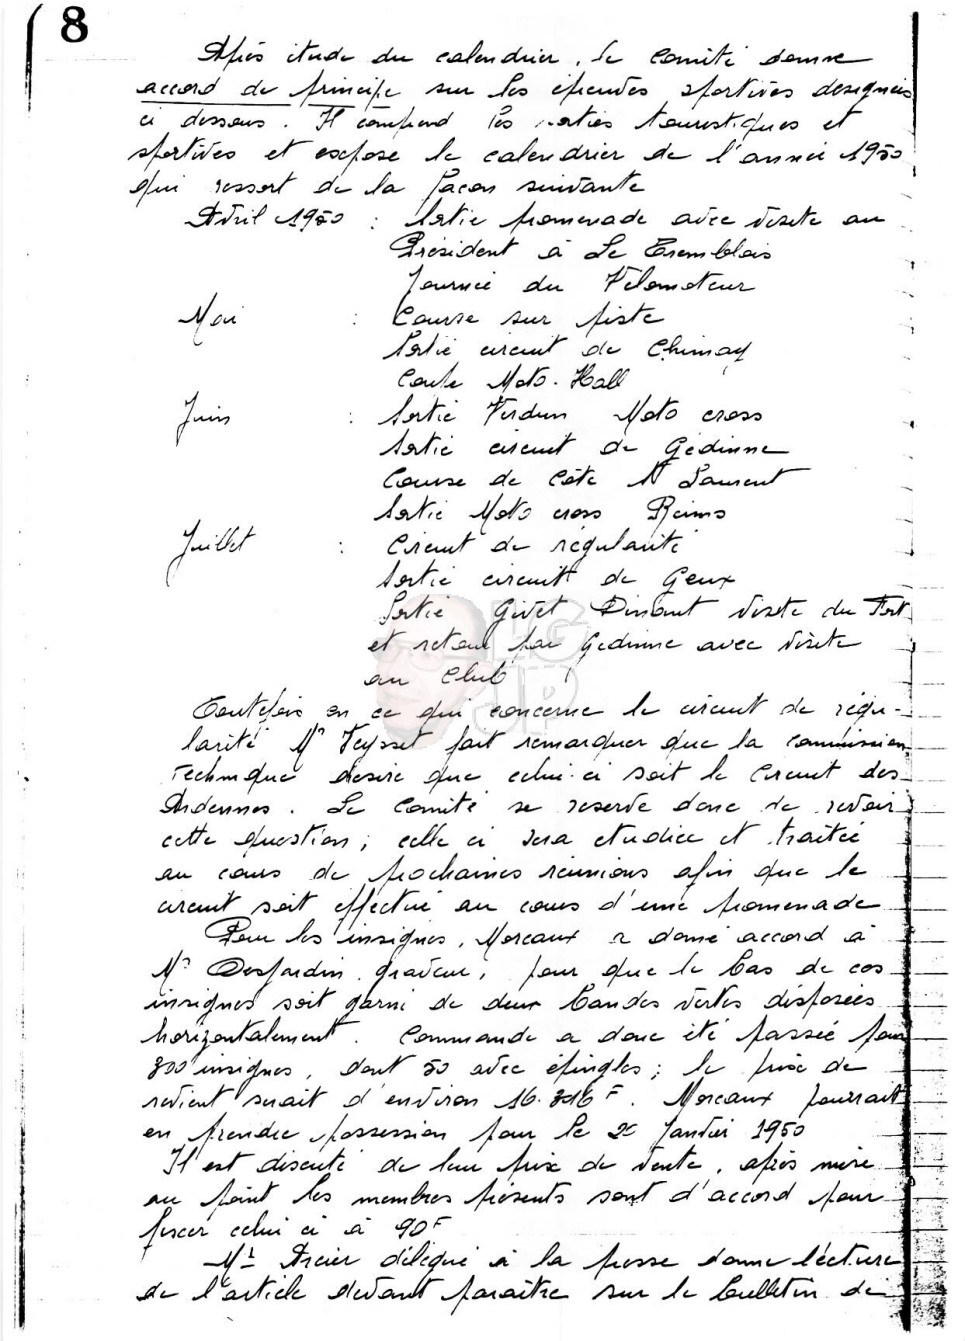 8
Après étude du calendrier, le Comité donne
accord de principe sur les épreuves sportives designées
ci dessous. Il comprend les sorties touristiques et
sportives et expose le calendrier de l'année 1950
qui ressort de la façon suivante
Avril 1950 : Sortie promenade avec visite au
Président à Le Tremblois
Journée du Vélomoteur
Mai : Course sur piste
Sortie circuit de Chimay
Coupe Moto-Hall
Juin : Sortie Verdun Moto cross
Sortie circuit de Gedinne
Course de Côte St Laurent
Sortie Moto cross Reims
Juillet : Circuit de régularité
Sortie circuit de Geux
Sortie Givet Dinant visite du Fort
et retour par Gedinne avec visite
au Club
Toutefois en ce qui concerne le circuit de régu-
larité Mr Teysset fait remarquer que la commission
Technique désire que celui-ci soit le Circuit des
Ardennes. Le Comité se reserve donc de revoir
cette question ; celle ci sera etudiée et traitée
au cours de prochaines réunions afin que le
circuit soit effectué au cours d'une promenade
Pour les insignes, Moreaux a donné accord à
Mr Desjardin graveur, pour que le bas de ces
insignes soit garni de deux bandes vertes disposées
horizontalement. Commande a donc été passée pour
300 insignes, dont 50 avec épingles ; le prix de
revient serait d'environ 16.816 F. Moreaux pourrait
en prendre possession pour le 20 Janvier 1950
Il est discuté de leur prix de vente, après mise
au point les membres présents sont d'accord pour
fixer celui ci à 90 F
Mr Arcier délégué à la presse donne lecture
de l'article devant paraître sur le bulletin de
LG
JP